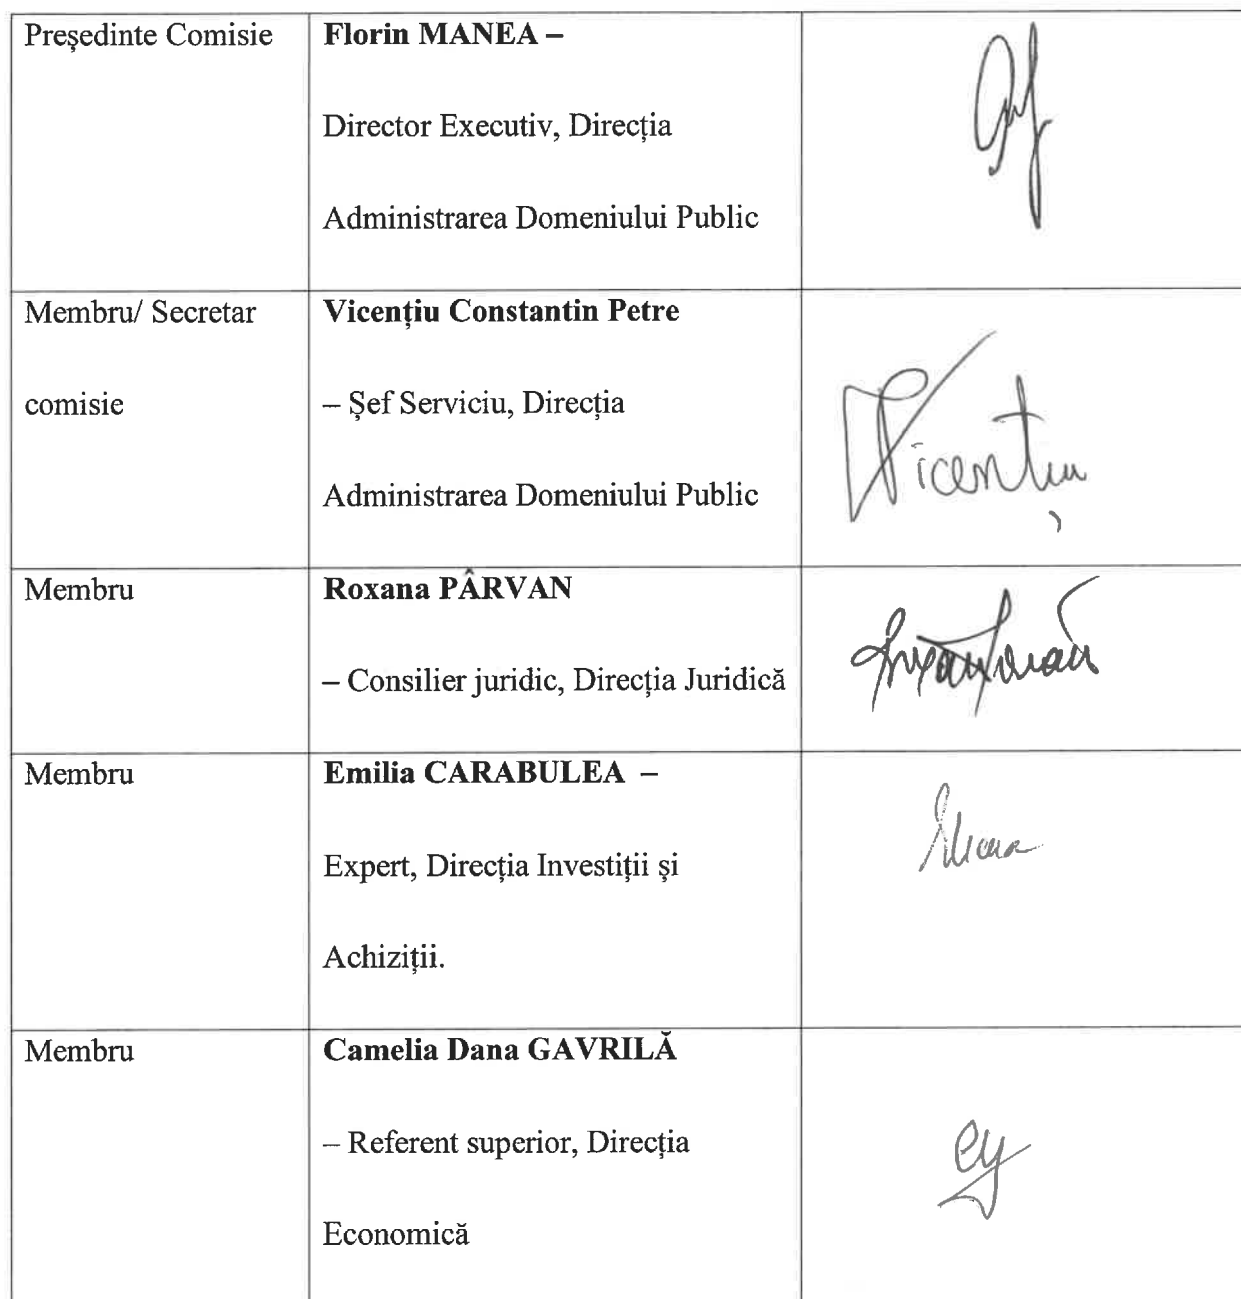 Președinte Comisie
Florin MANEA –
Director Executiv, Direcția
Administrarea Domeniului Public
Membru/ Secretar
comisie
Vicențiu Constantin Petre
– Șef Serviciu, Direcția
Administrarea Domeniului Public
Vicențiu
Membru
Roxana PÂRVAN
– Consilier juridic, Direcția Juridică
Membru
Emilia CARABULEA –
Expert, Direcția Investiții și
Achiziții.
Membru
Camelia Dana GAVRILĂ
– Referent superior, Direcția
Economică